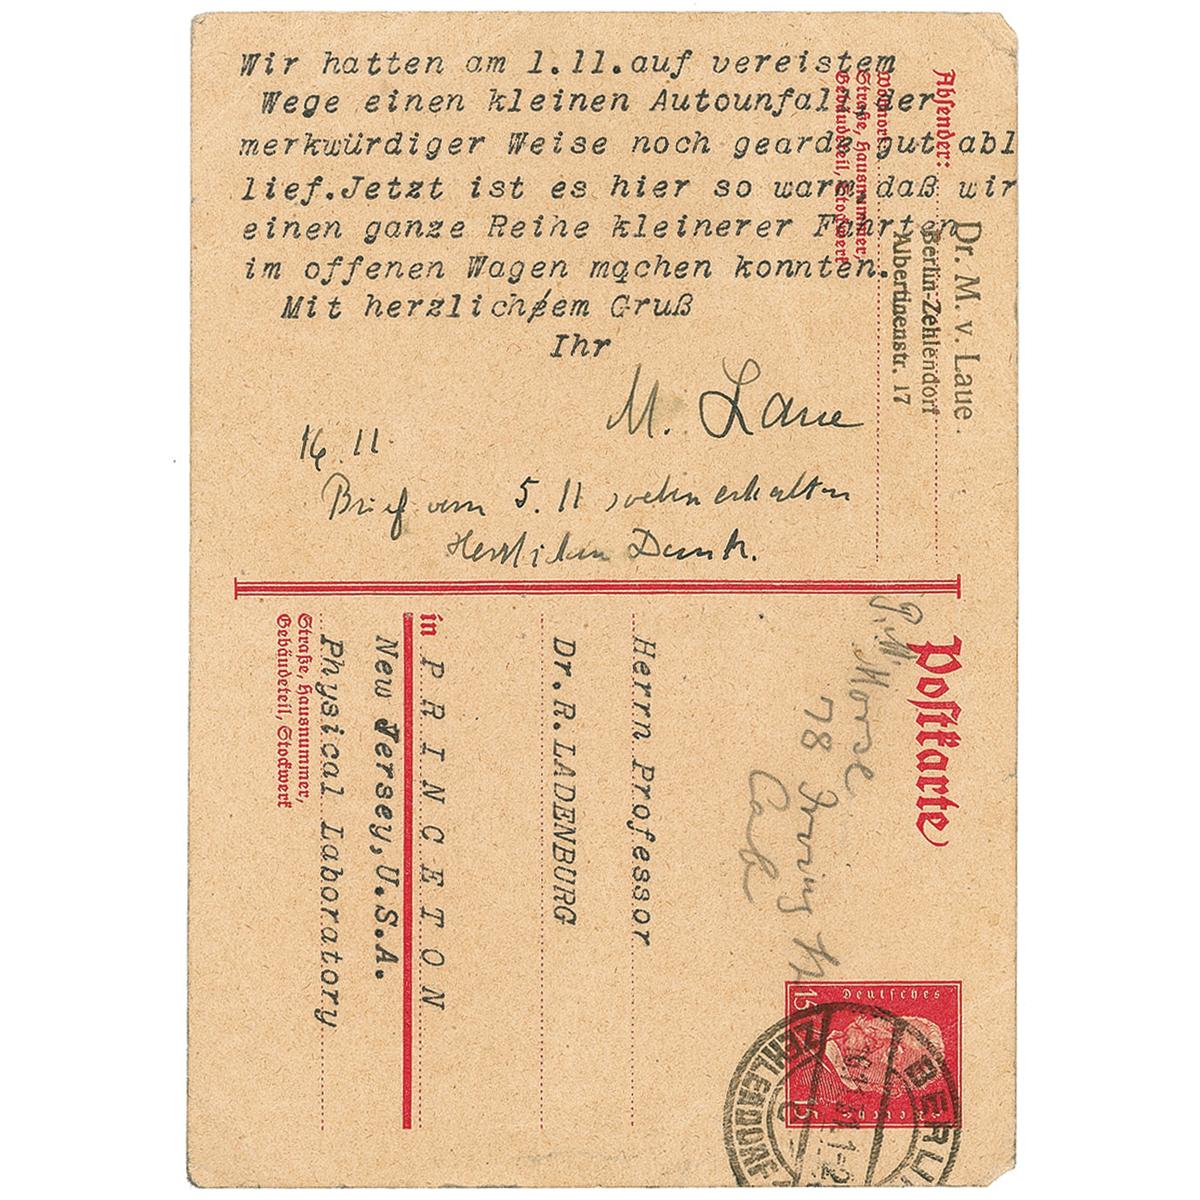 Wir hatten am 1.11.auf vereistem
Wege einen kleinen Autounfall, der
merkwürdiger Weise noch gearde gut abl
lief.Jetzt ist es hier so warm, daß wir
einen ganze Reihe kleinerer Fahrten
im offenen Wagen machen konnten.
Mit herzlichem Gruß
Ihr
M. Laue
16.11
Brief vom 5.11 soeben erhalten
Herzlichen Dank.
Absender:
Wohnort
Straße, Hausnummer,
Gebäudeteil, Stockwerk
Dr. M. v. Laue
Berlin-Zehlendorf
Albertinenstr. 17
Postkarte
P. M. Morse
78 Irving
Herrn Professor
Dr.R.LADENBURG
in PRINCETON
New Jersey,U.S.A.
Physical Laboratory
Straße, Hausnummer,
Gebäudeteil, Stockwerk
Deutsches
15 15
BERLIN
ZEHLENDORF